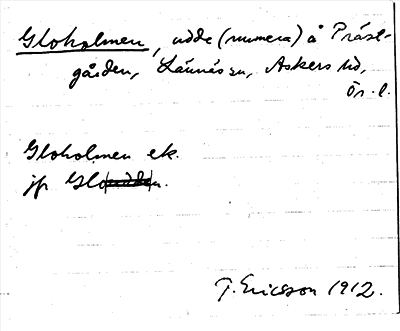 Gloholmen, udde (numera) å Präst-
gården, Lännäs sn, Askers hd,
Ör. l.
Gloholmen ek.
jfr Glon.
T. Ericsson 1912.